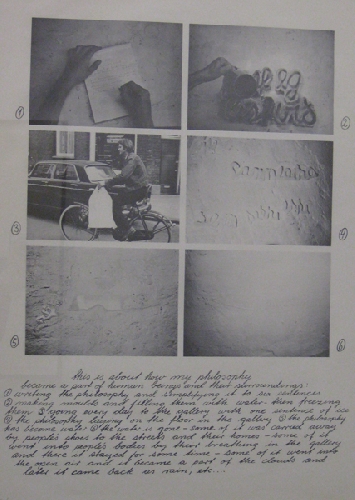 ①
②
③
④
⑤
⑥
this is about how my philosophy
became a part of human beings and their surroundings:
① writing the philosophy and simplifying it to six sentences
② making moulds and filling them with water then freezing
them ③ going every day to the gallery with one sentence of ice
④ the philosophy laying on the floor in the gallery ⑤ the philosophy
has become water ⑥ the water is gone - some of it was carried away
by people's shoes to the streets and their homes - some of it
went into people's bodies by their breathing in the gallery
and there it stayed for some time - some of it went into
the open air and it became a part of the clouds and
later it came back as rain, etc...